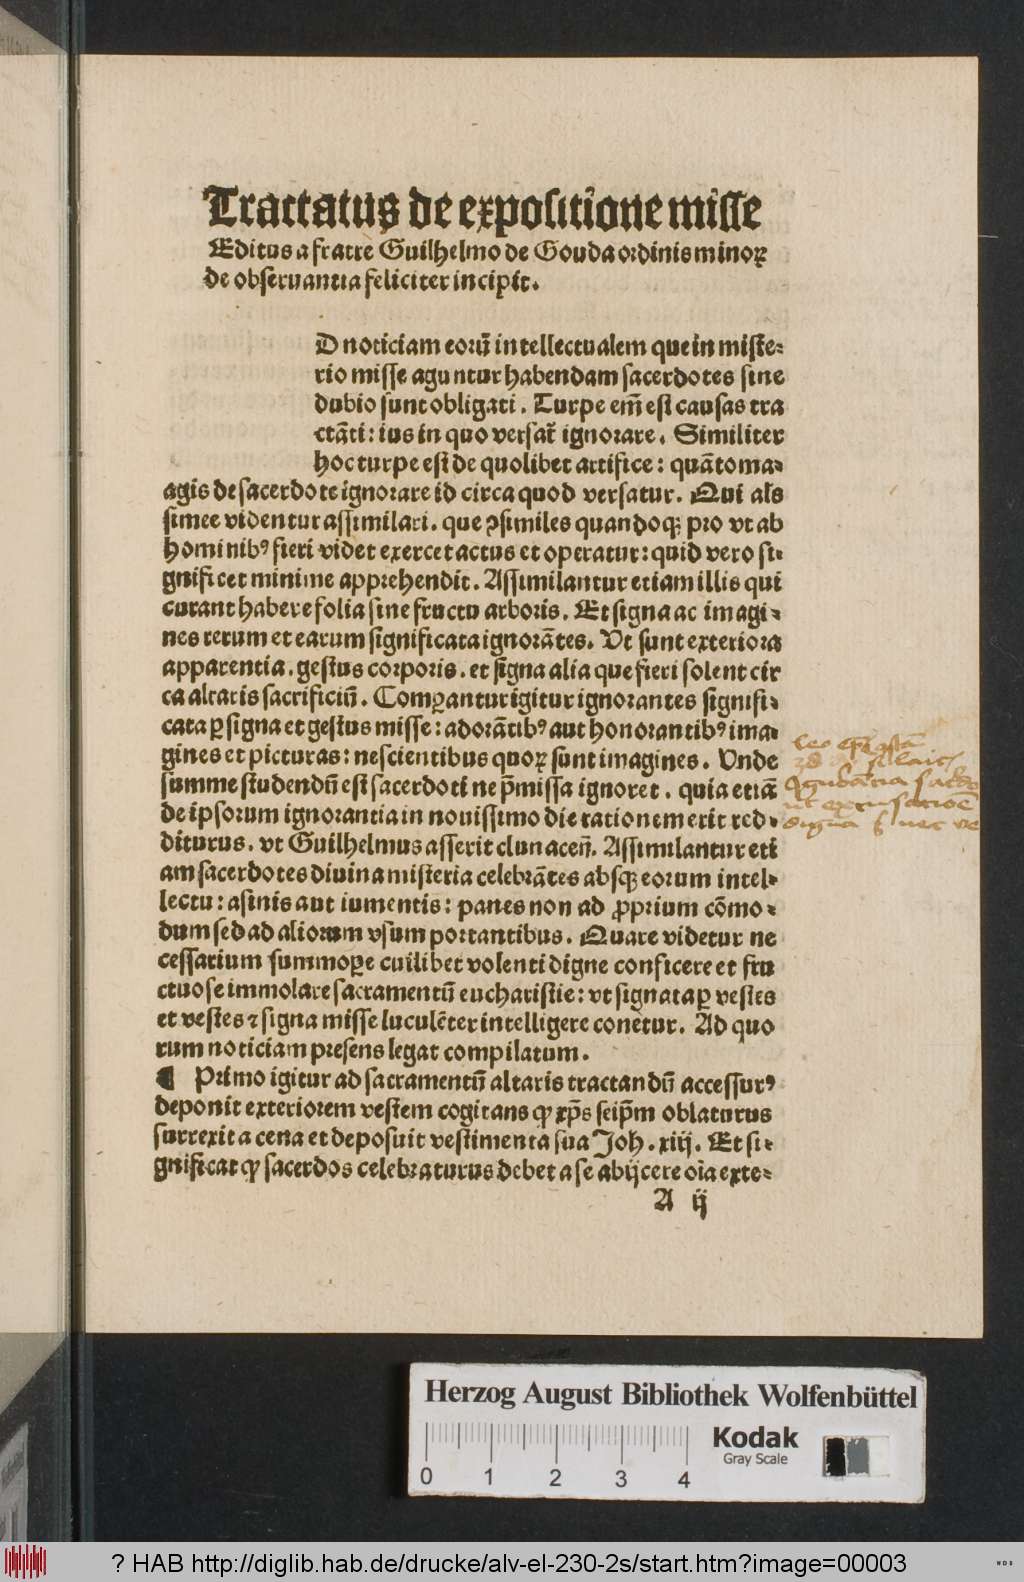 Tractatus de expositione misse
Editus a fratre Guilhelmo de Gouda ordinis minoꝝ
de obseruantia feliciter incipit.
D noticiam eorū intellectualem que in miste-
rio misse aguntur habendam sacerdotes sine
dubio sunt obligati. Turpe em̄ est causas tra
ctāti: ius in quo versat̄ ignorare. Similiter
hoc turpe est de quolibet artifice: quāto ma-
agis de sacerdote ignorare id circa quod versatur. Qui als
simee videntur assimilari. que ꝯsimiles quandoqꝫ pro vt ab
hominibꝰ fieri videt exercet actus et operatur: quid vero si-
gnificet minime apprehendit. Assimilantur etiam illis qui
curant habere folia sine fructu arboris. Et signa ac imagi-
nes rerum et earum significata ignorātes. Vt sunt exteriora
apparentia. gestus corporis. et signa alia que fieri solent cir
ca altaris sacrificiū. Comꝑantur igitur ignorantes signifi-
cata ꝑ signa et gestus misse: adorātibꝰ aut honorantibꝰ ima-
gines et picturas: nescientibus quoꝝ sunt imagines. Vnde
summe studendū est sacerdoti ne p̄missa ignoret. quia etiā
de ipsorum ignorantia in nouissimo die rationem erit red-
diturus. vt Guilhelmus asserit clunaceñ. Assimilantur eti
am sacerdotes diuina misteria celebrātes absqꝫ eorum intel-
lectu: asinis aut iumentis: panes non ad ꝓprium cōmo-
dum sed ad aliorum vsum portantibus. Quare videtur ne
cessarium summoꝑe cuilibet volenti digne conficere et fru
ctuose immolare sacramentū eucharistie: vt signata ꝑ vestes
et vestes ⁊ signa misse luculēter intelligere conetur. Ad quo
rum noticiam presens legat compilatum.
¶ Primo igitur ad sacramentū altaris tractandū accessurꝰ
deponit exteriorem vestem cogitans ꝙ xp̄s seip̄m oblaturus
surrexit a cena et deposuit vestimenta sua Joh. xiij. Et si-
gnificat ꝙ sacerdos celebraturus debet a se abijcere oīa exte-
A ij
Herzog August Bibliothek Wolfenbüttel
Kodak
Gray Scale
0 1 2 3 4
? HAB http://diglib.hab.de/drucke/alv-el-230-2s/start.htm?image=00003